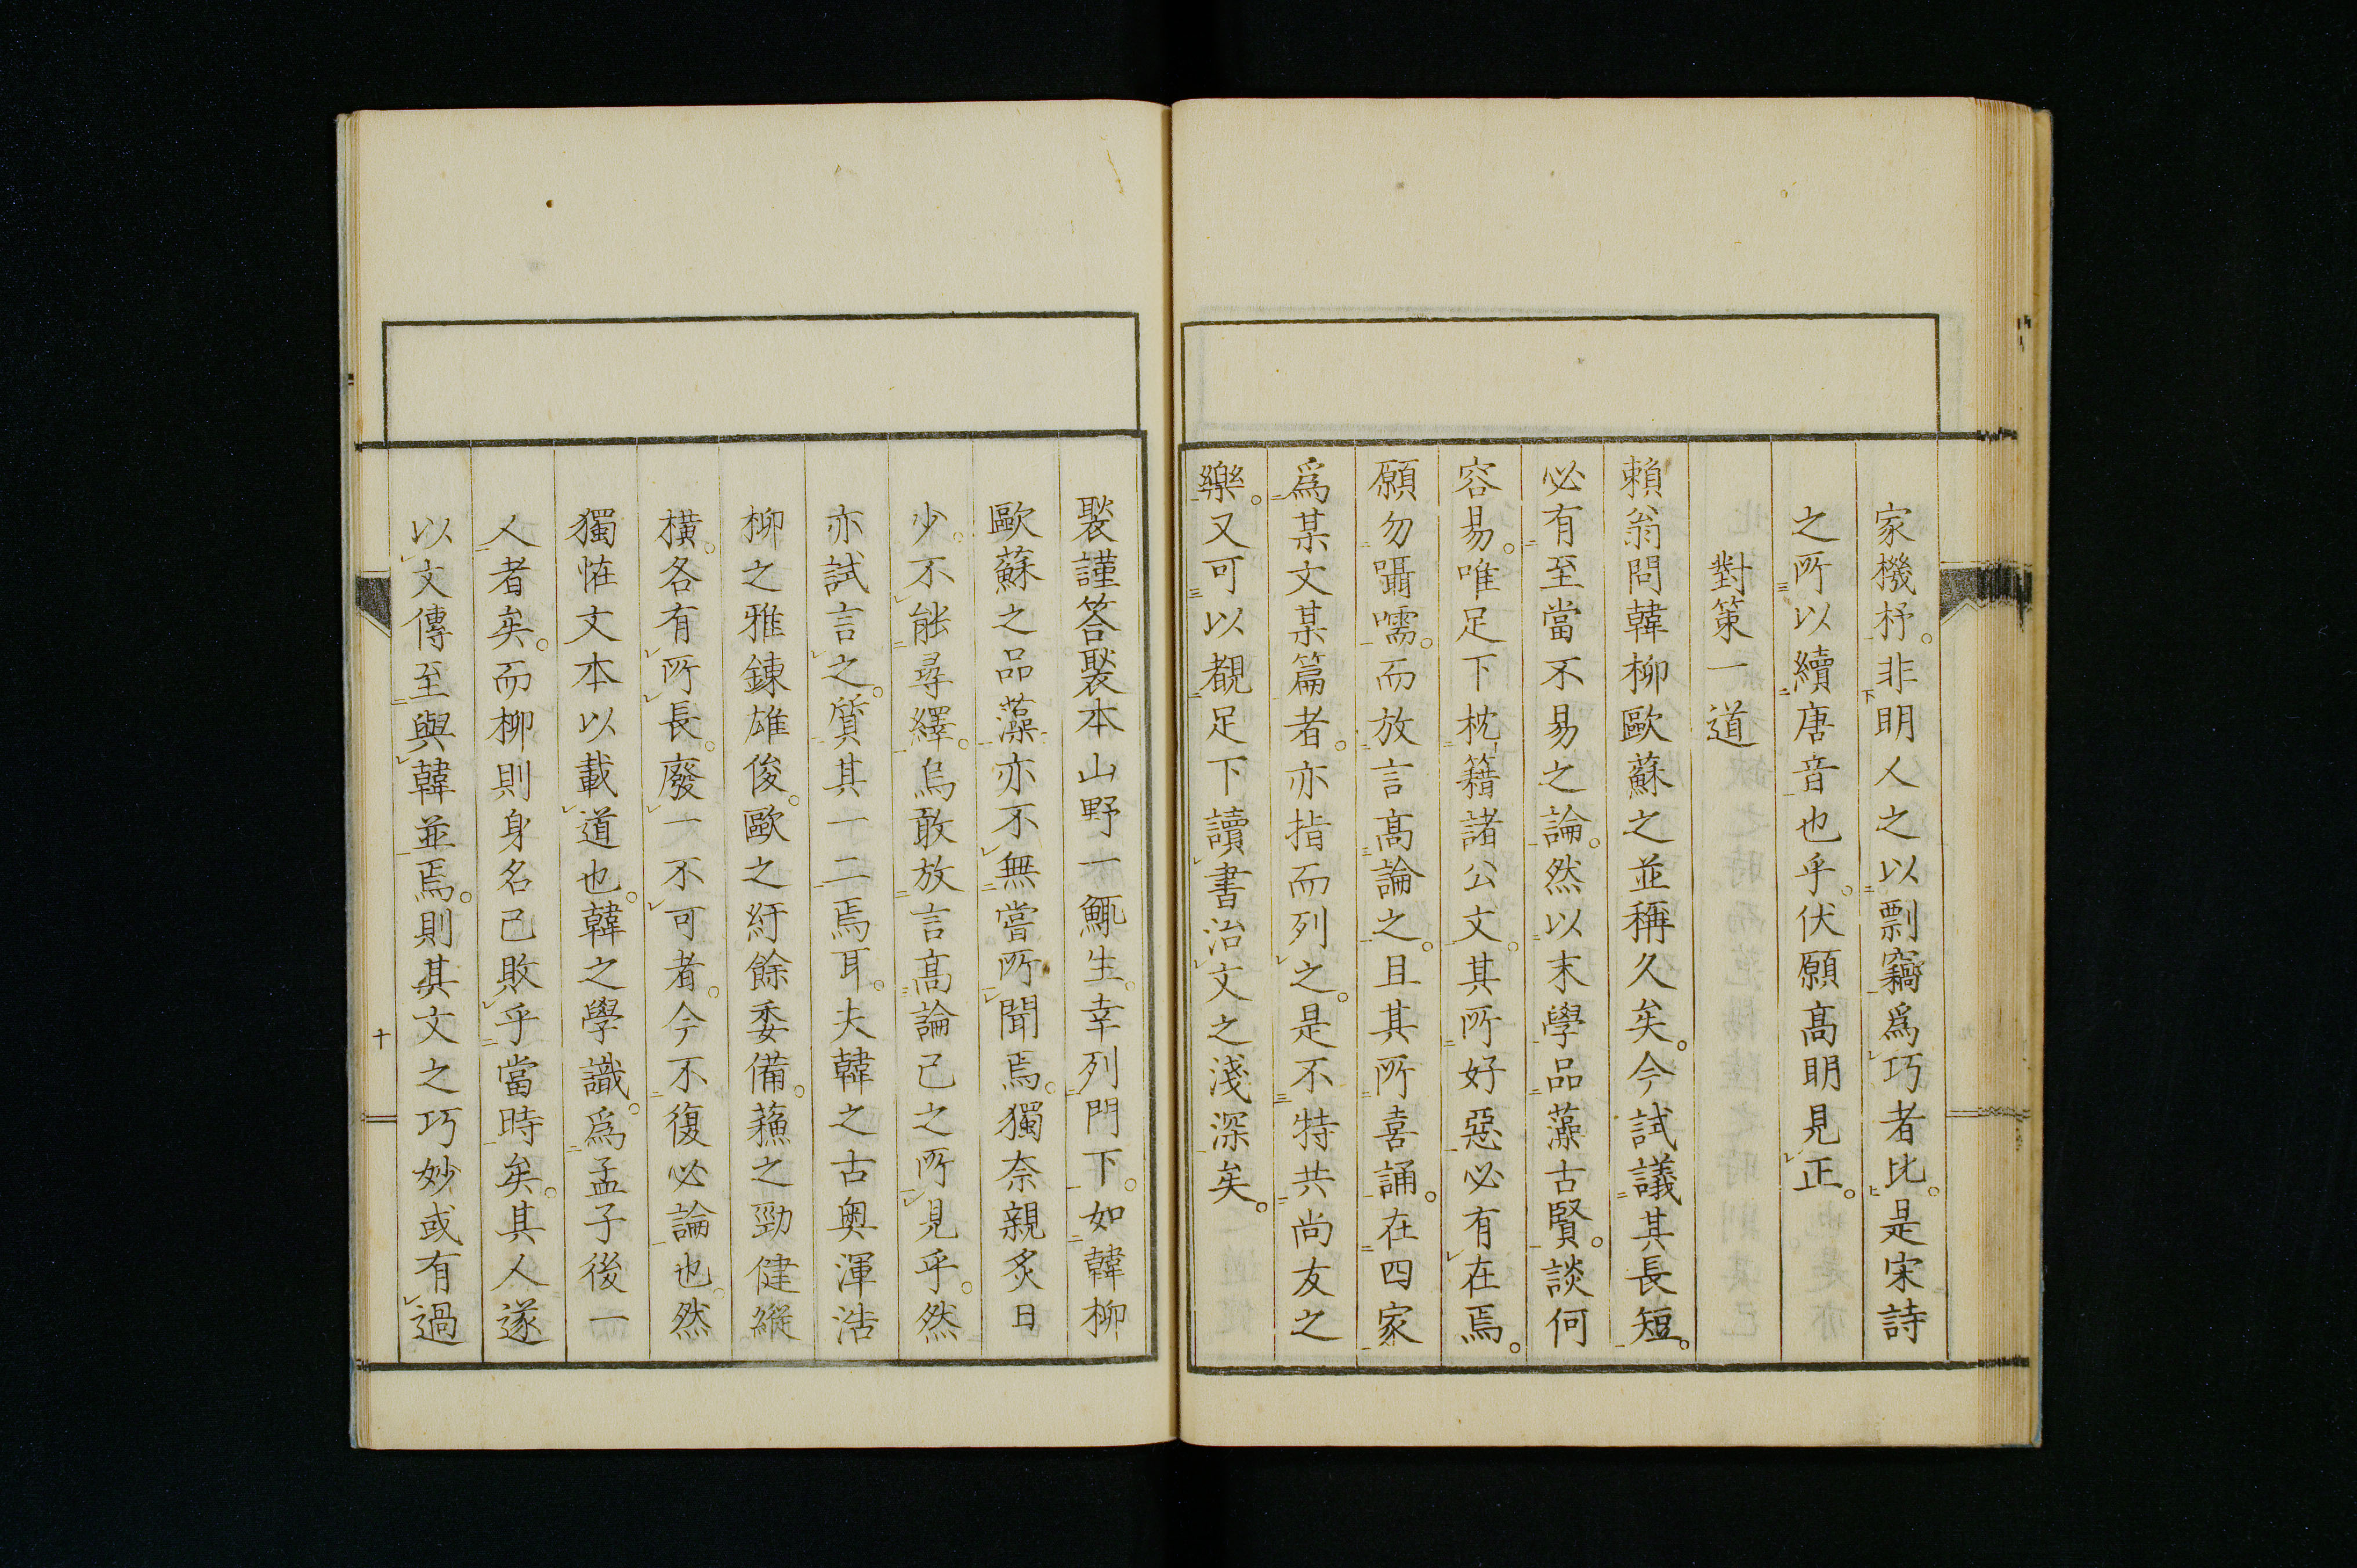 家機杼。非明人之以剽竊爲巧者比。是宋詩
之所以續唐音也乎。伏願髙明見正。
對策一道
賴翁問韓柳歐蘇之並稱久矣。今試議其長短。
必有至當不易之論。然以末學品藻古賢。談何
容易。唯足下枕籍諸公文。其所好惡必有在焉。
願勿囁嚅。而放言髙論之。且其所喜誦。在四家
爲某文某篇者。亦指而列之。是不特共尚友之
樂。又可以覩足下讀書治文之淺深矣。
褧謹答褧本山野一鯫生。幸列門下。如韓柳
歐蘇之品藻亦不無嘗所聞焉。獨奈親炙日
少。不能尋繹。烏敢放言髙論己之所見乎。然
亦試言之。質其一二焉耳。夫韓之古奥渾浩
柳之雅錬雄俊。歐之紆餘委備。蘓之勁健縱
横。各有所長。廢一不可者。今不復必論也。然
獨恠文本以載道也。韓之學識。爲孟子後一
人者矣。而柳則身名已敗乎當時矣。其人遂
以文傳至與韓並焉。則其文之巧妙或有過
十